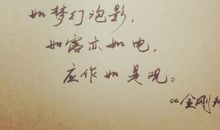 如梦幻泡影，
如露亦如电，
应作如是观。
《金刚